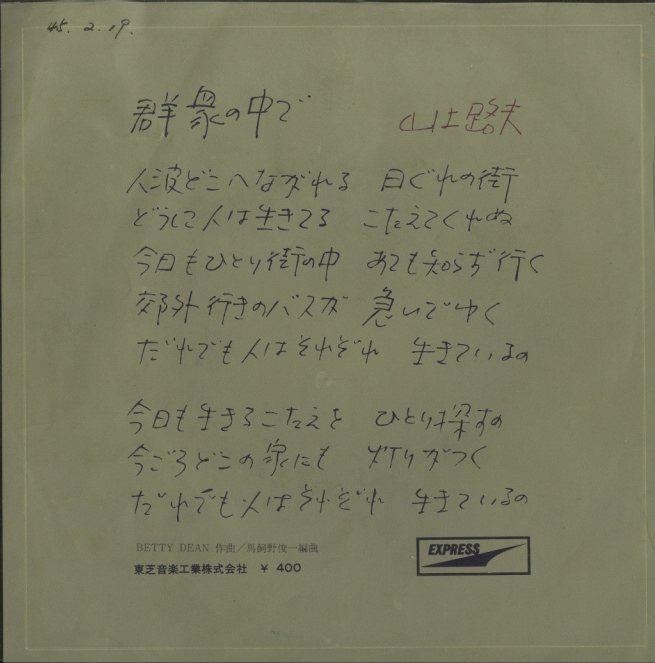 45. 2. 19.
群衆の中で 山上路夫
人波どこへながれる 日ぐれの街
どうして人は生きてる こたえてくれぬ
今日もひとり街の中 あても知らず行く
郊外行きのバスが 急いでゆく
だれでも人はそれぞれ 生きているの
今日も生きるこたえを ひとり探すの
今ごろどこの家にも 灯りがつく
だれでも人はそれぞれ 生きているの
BETTY DEAN 作曲／馬飼野俊一編曲
東芝音楽工業株式会社 ￥ 400
EXPRESS